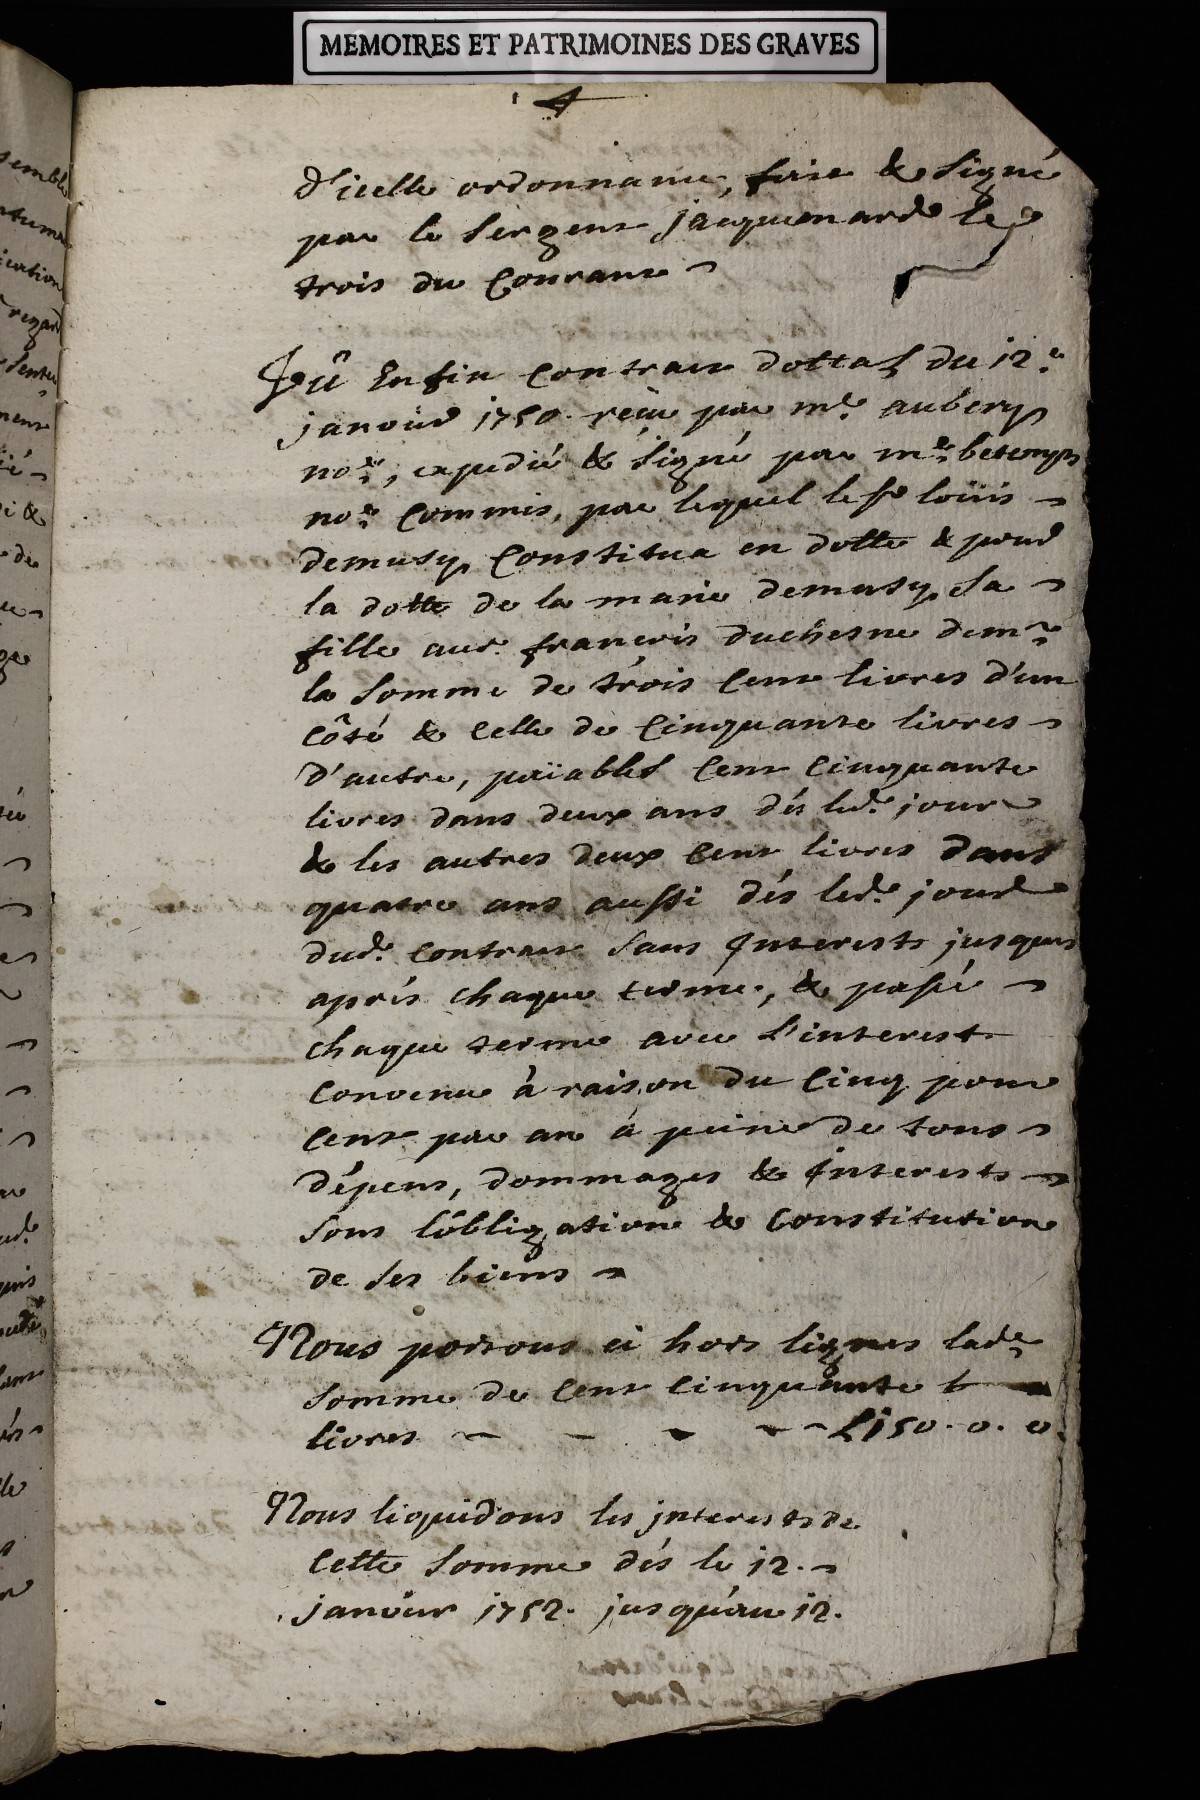 MEMOIRES ET PATRIMOINES DES GRAVES
4
d'icelle ordonnance, faire & signé
par le sergent jacquemard le
trois du Courant
Veû Enfin Contract dottal du 12.e
janvier 1750. reçu par m.e aubery
no.re, expedié & signé par m.re betemps
no.re Commis, par lequel le sr loüis
demusy Constitua en dotte & pour
la dotte de la marie demusy sa
fille aud. françois duchesne dem.r
la somme de trois Cent livres d'un
Côté & Celle de Cinquante livres
d'autre, païables Cent Cinquante
livres dans deux ans dés led.t jour
& les autres deux Cent livres dans
quatre ans aussi dés led.t jour
dud.t Contract sans Interests jusques
aprés chaque terme, & passé
chaque terme avec l'interest
Convenu à raison du Cinq pour
Cent par an á peine de tous
dépens, dommages & Interests
sous l'óbligation & Constitution
de ses biens
Nous portons ci hors lignes lad.e
somme de Cent Cinquante
livres L 150. 0. 0.
Nous liquidons les jnterests de
Cette somme dés le 12.
janvier 1752. jusqu'au 12.